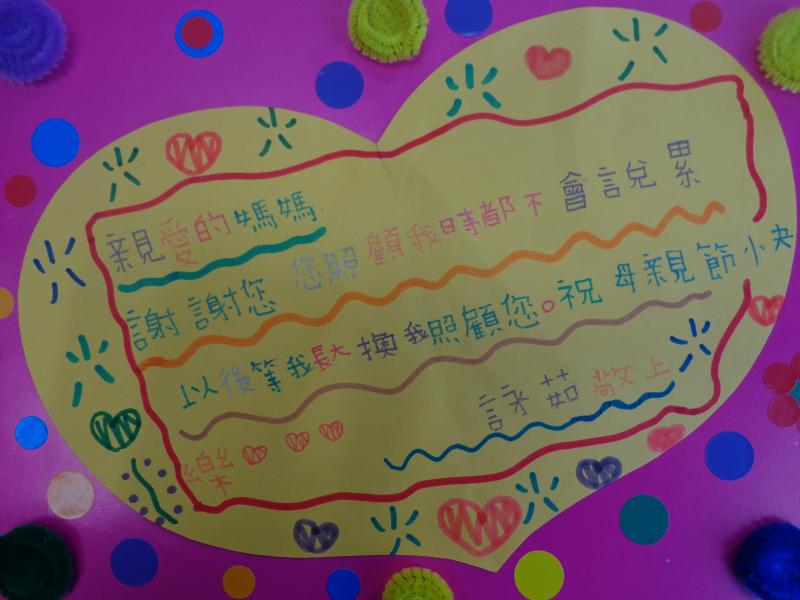 親愛的媽媽
謝謝您 您照顧我時都不會說累
以後等我長大換我照顧您。祝母親節快
樂
詠茹敬上